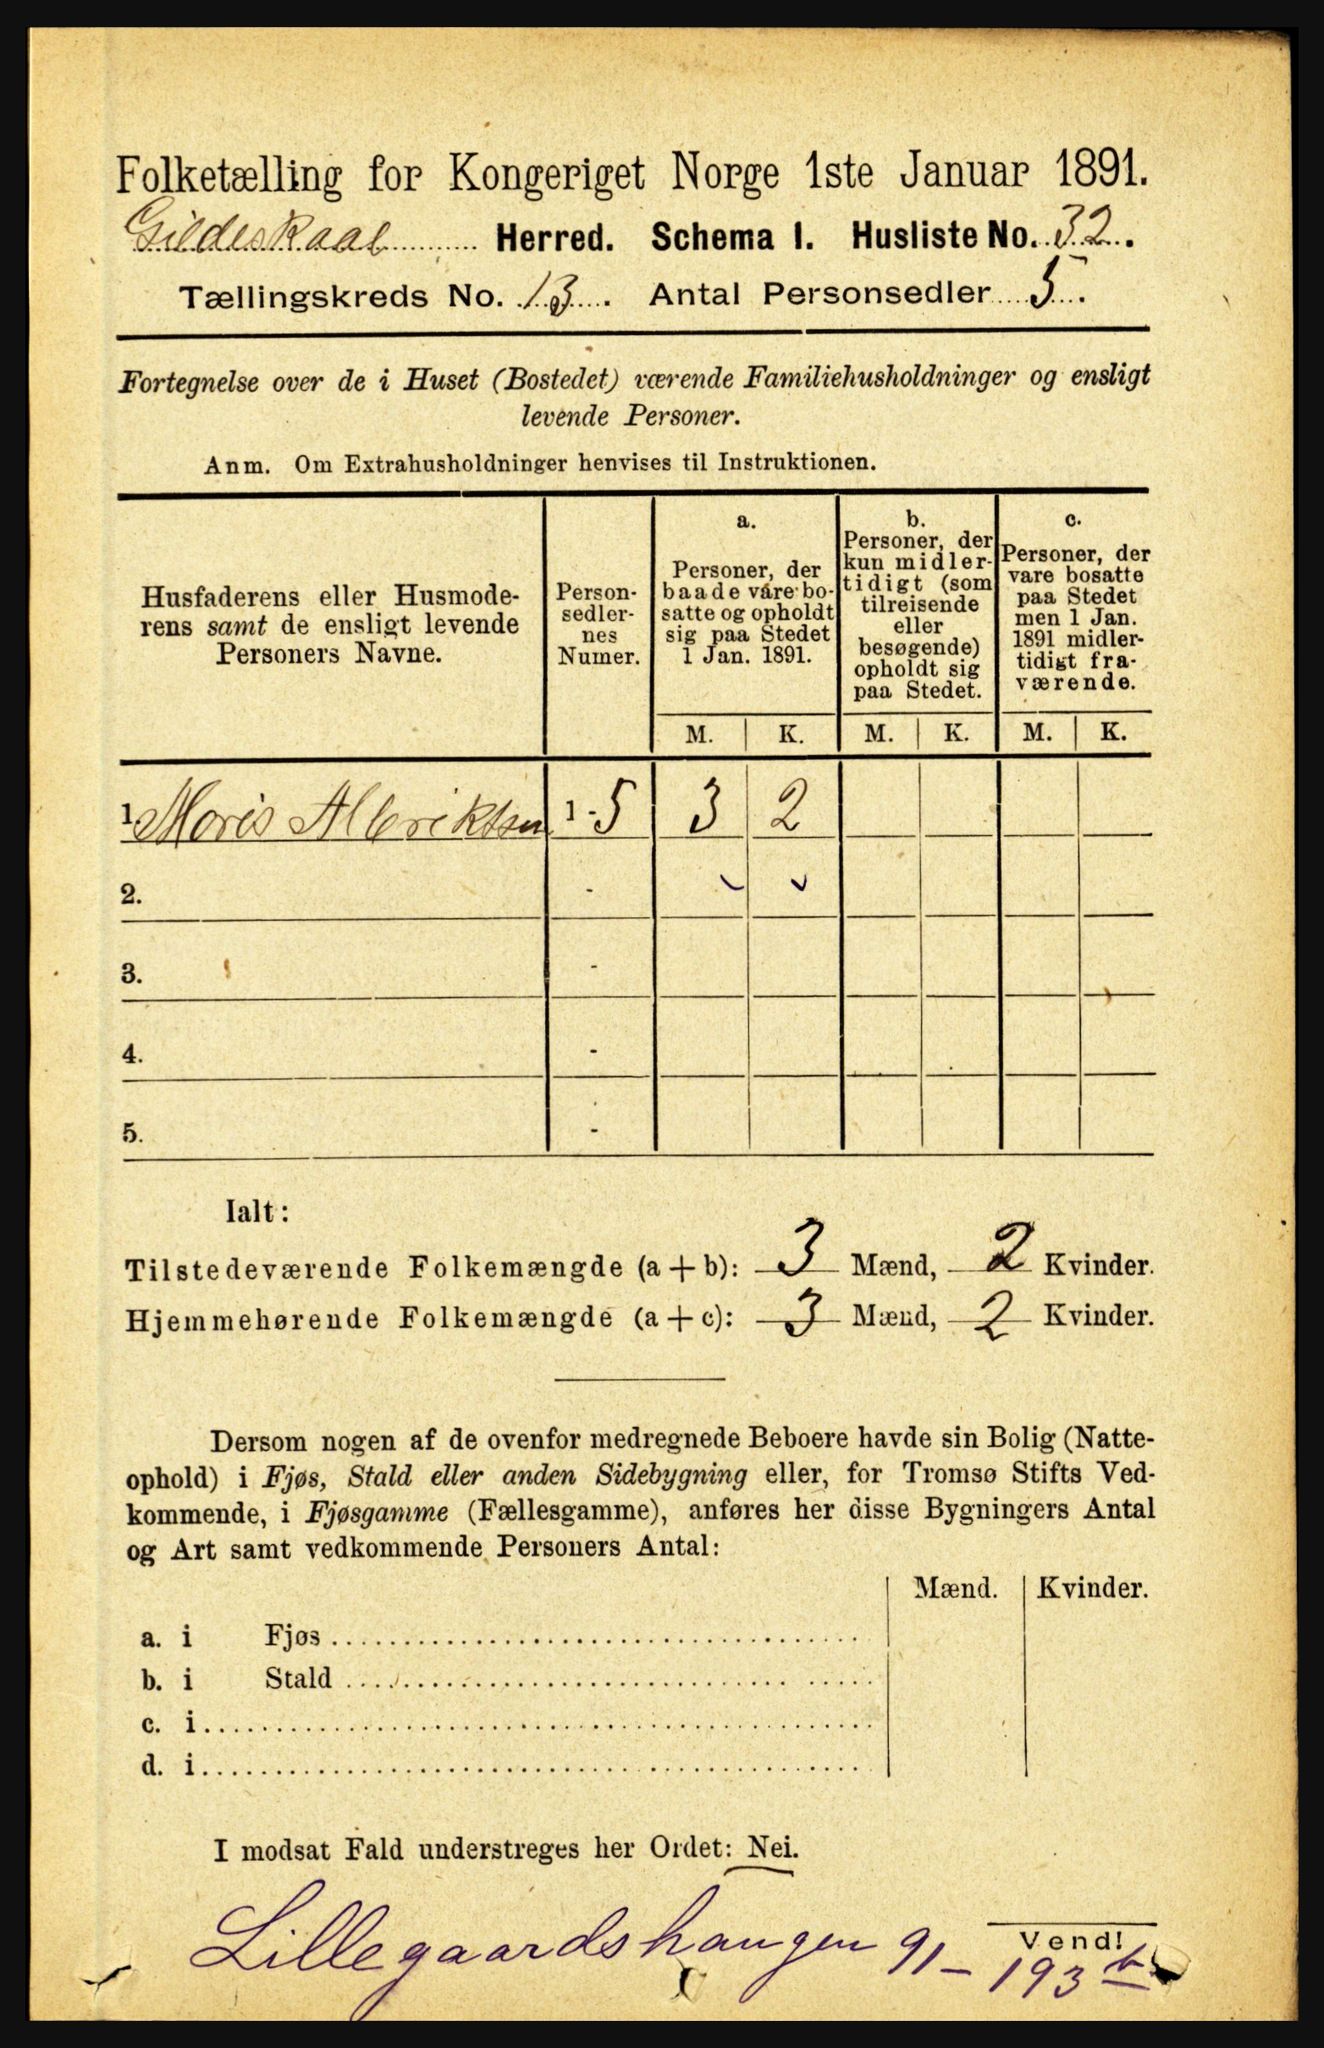 Folketælling for Kongeriget Norge 1ste Januar 1891.
Gildeskaal Herred. Schema 1. Husliste No. 32.
Tællingskreds No. 13. Antal Personsedler 5.
Fortegnelse over de i Huset (Bostedet) værende Familiehusholdninger og ensligt
levende Personer.
Anm. Om Extrahusholdninger henvises til Instruktionen.
Husfaderens eller Husmode-
rens samt de ensligt levende
Personers Navne.
Person-
sedler-
nes
Numer.
a.
Personer, der
baade vare bo-
satte og opholdt
sig paa Stedet
1 Jan. 1891.
b.
Personer, der
kun midler-
tidigt (som
tilreisende
eller
besøgende)
opholdt sig
paa Stedet.
c.
Personer, der
vare bosatte
paa Stedet
men 1 Jan.
1891 midler-
tidigt fra-
værende.
M. K. M. K. M. K.
1. Moris Albriktsen 1-5 3 2
2. -
3. -
4. -
5. -
Ialt:
Tilstedeværende Folkemængde (a + b): 3 Mænd, 2 Kvinder.
Hjemmehørende Folkemængde (a + c): 3 Mænd, 2 Kvinder.
Dersom nogen af de ovenfor medregnede Beboere havde sin Bolig (Natte-
ophold) i Fjøs, Stald eller anden Sidebygning eller, for Tromsø Stifts Ved-
kommende, i Fjøsgamme (Fællesgamme), anføres her disse Bygningers Antal
og Art samt vedkommende Personers Antal:
Mænd. Kvinder.
a. i Fjøs
b. i Stald
c. i
d. i
I modsat Fald understreges her Ordet: Nei.
Vend!
Lillegaardshaugen 91-193b